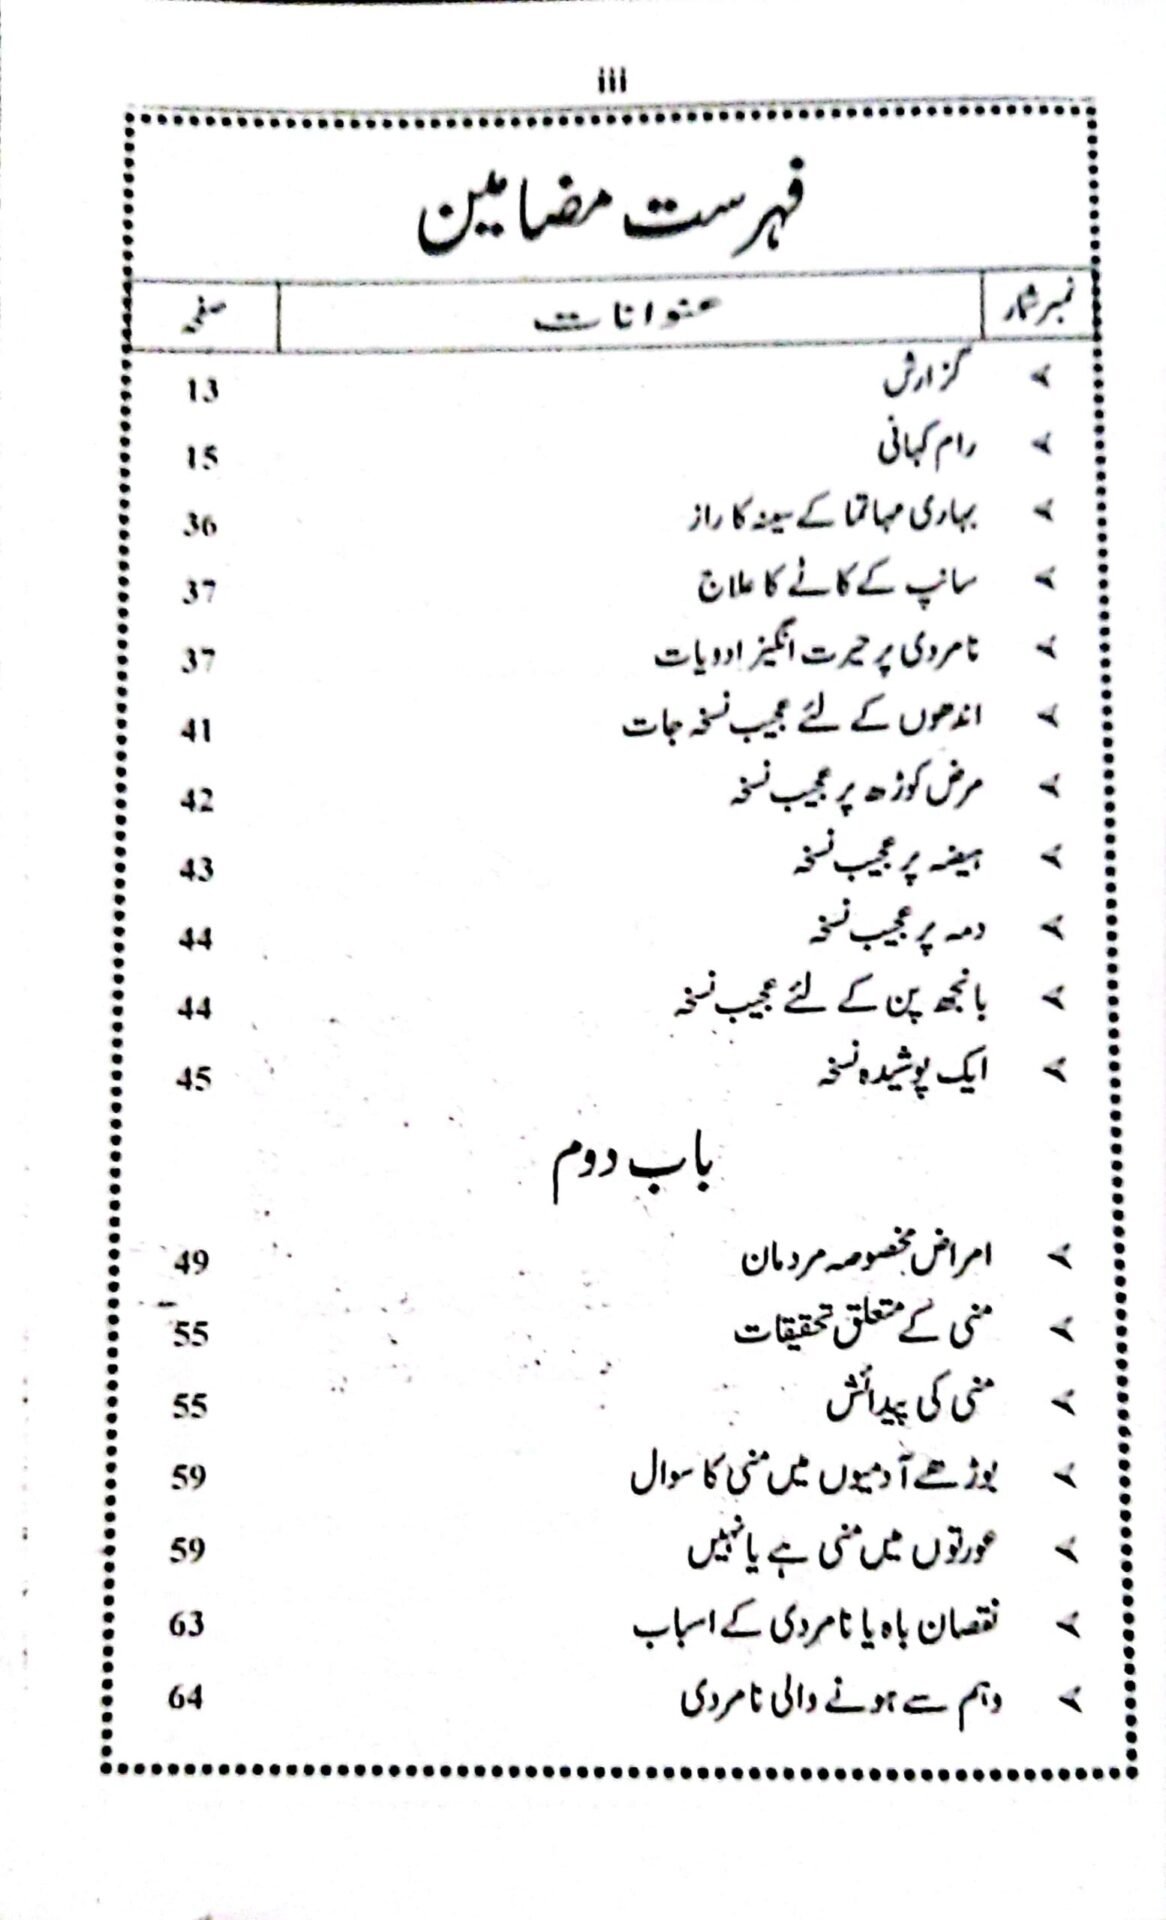 iii
فہرست مضامین
نمبر شمار عنوانات صفحہ
گزارش 13
رام کہانی 15
بہاری مہاتما کے سینہ کا راز 36
سانپ کے کاٹے کا علاج 37
نامردی پر حیرت انگیز ادویات 37
اندھوں کے لئے عجیب نسخہ جات 41
مرض کوڑھ پر عجیب نسخہ 42
ہیضہ پر عجیب نسخہ 43
دمہ پر عجیب نسخہ 44
بانجھ پن کے لئے عجیب نسخہ 44
ایک پوشیدہ نسخہ 45
باب دوم
امراض مخصوصہ مردمان 49
منی کے متعلق تحقیقات 55
منی کی پیدائش 55
بوڑھے آدمیوں میں منی کا سوال 59
عورتوں میں منی ہے یا نہیں 59
نقصان باہ یا نامردی کے اسباب 63
وہم سے ہونے والی نامردی 64